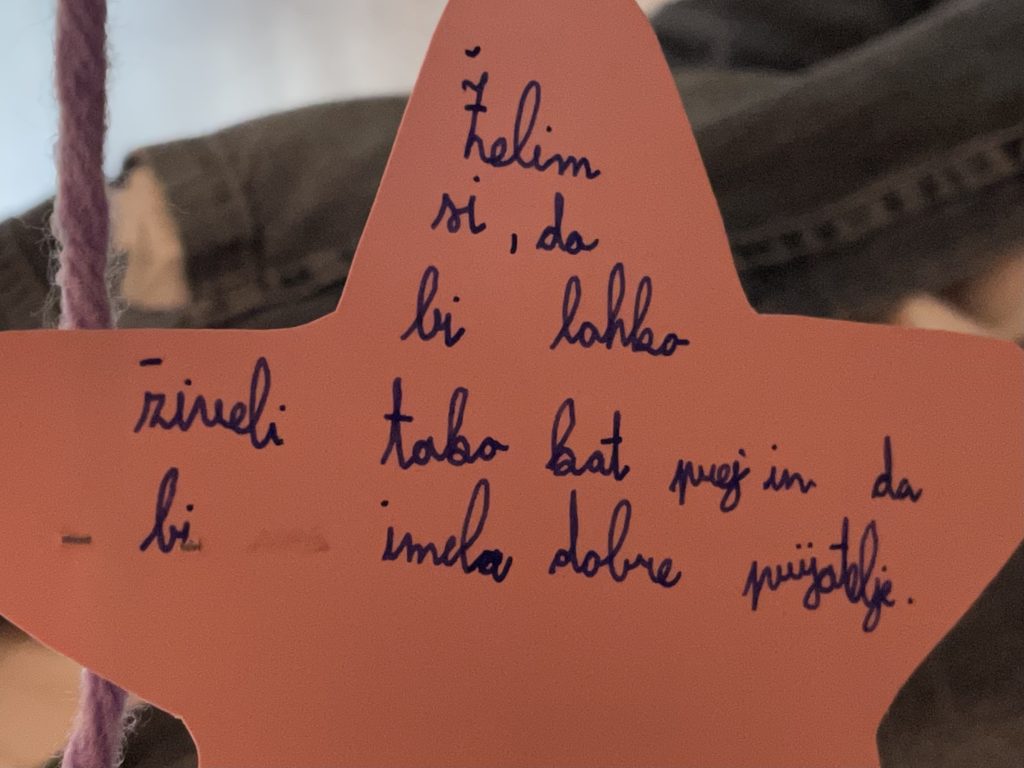 Želim
si, da
bi lahko
živeli tako kat prej in da
bi imela dobre prijatelje.